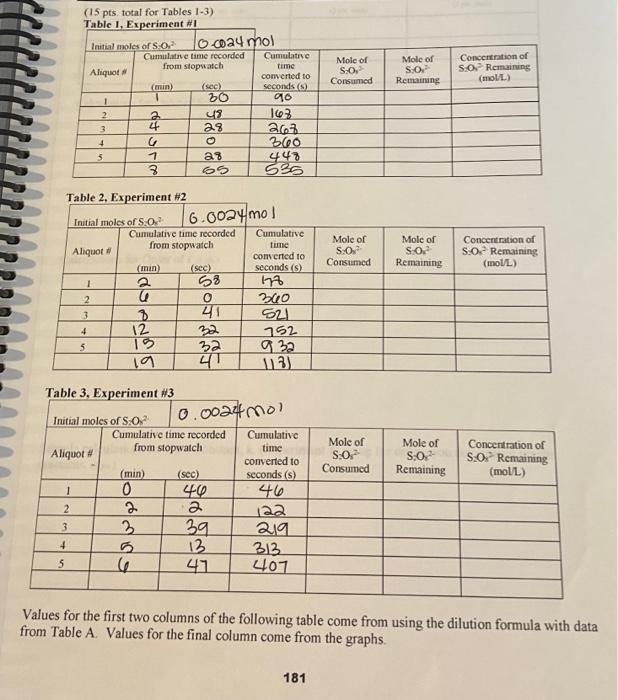 (15 pts. total for Tables 1-3)
Table 1, Experiment #1
Initial moles of S₂O₈²⁻ 0.0024 mol
Aliquot # | Cumulative time recorded from stopwatch (min) (sec) | Cumulative time converted to seconds (s) | Mole of S₂O₈²⁻ Consumed | Mole of S₂O₈²⁻ Remaining | Concentration of S₂O₈²⁻ Remaining (mol/L)
1 1 30 90
2 2 48 163
3 4 28 263
4 6 0 360
5 7 28 448
8 55 535
Table 2, Experiment #2
Initial moles of S₂O₈²⁻ 0.0024 mol
Aliquot # | Cumulative time recorded from stopwatch (min) (sec) | Cumulative time converted to seconds (s) | Mole of S₂O₈²⁻ Consumed | Mole of S₂O₈²⁻ Remaining | Concentration of S₂O₈²⁻ Remaining (mol/L)
1 2 58 178
2 6 0 360
3 8 41 521
4 12 32 752
5 15 32 932
19 41 1181
Table 3, Experiment #3
Initial moles of S₂O₈²⁻ 0.0024 mol
Aliquot # | Cumulative time recorded from stopwatch (min) (sec) | Cumulative time converted to seconds (s) | Mole of S₂O₈²⁻ Consumed | Mole of S₂O₈²⁻ Remaining | Concentration of S₂O₈²⁻ Remaining (mol/L)
1 0 46 46
2 2 2 122
3 3 39 219
4 5 13 313
5 6 47 407
Values for the first two columns of the following table come from using the dilution formula with data
from Table A. Values for the final column come from the graphs.
181